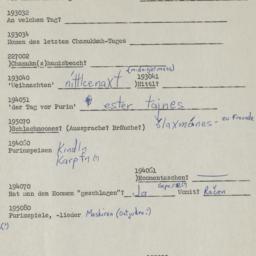 193032
An welchem Tag?
193034
Namen des letzten Chanukkah-Tages
227002
)Chanuka(s)hausbesch?
193040 193041
'Weihnachten' nittlcenaxt )Nittl?
194051
'der Tag vor Purin' ester tajnes
195070
)Schlachmones? (Aussprache? Bräuche?) šlaxmōnes - zu Freunde
194060
Purimspeisen Kindln
Karpfn
194061
)Homentaschen?
194070
Hat man dem Homen "geschlagen"? Ja Womit? Räšen
195080
Purimspiele, -lieder Maskiren